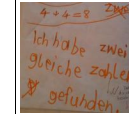 4 + 4 = 8 zwei
Ich habe zwei
gleiche zahlen
gefunden.